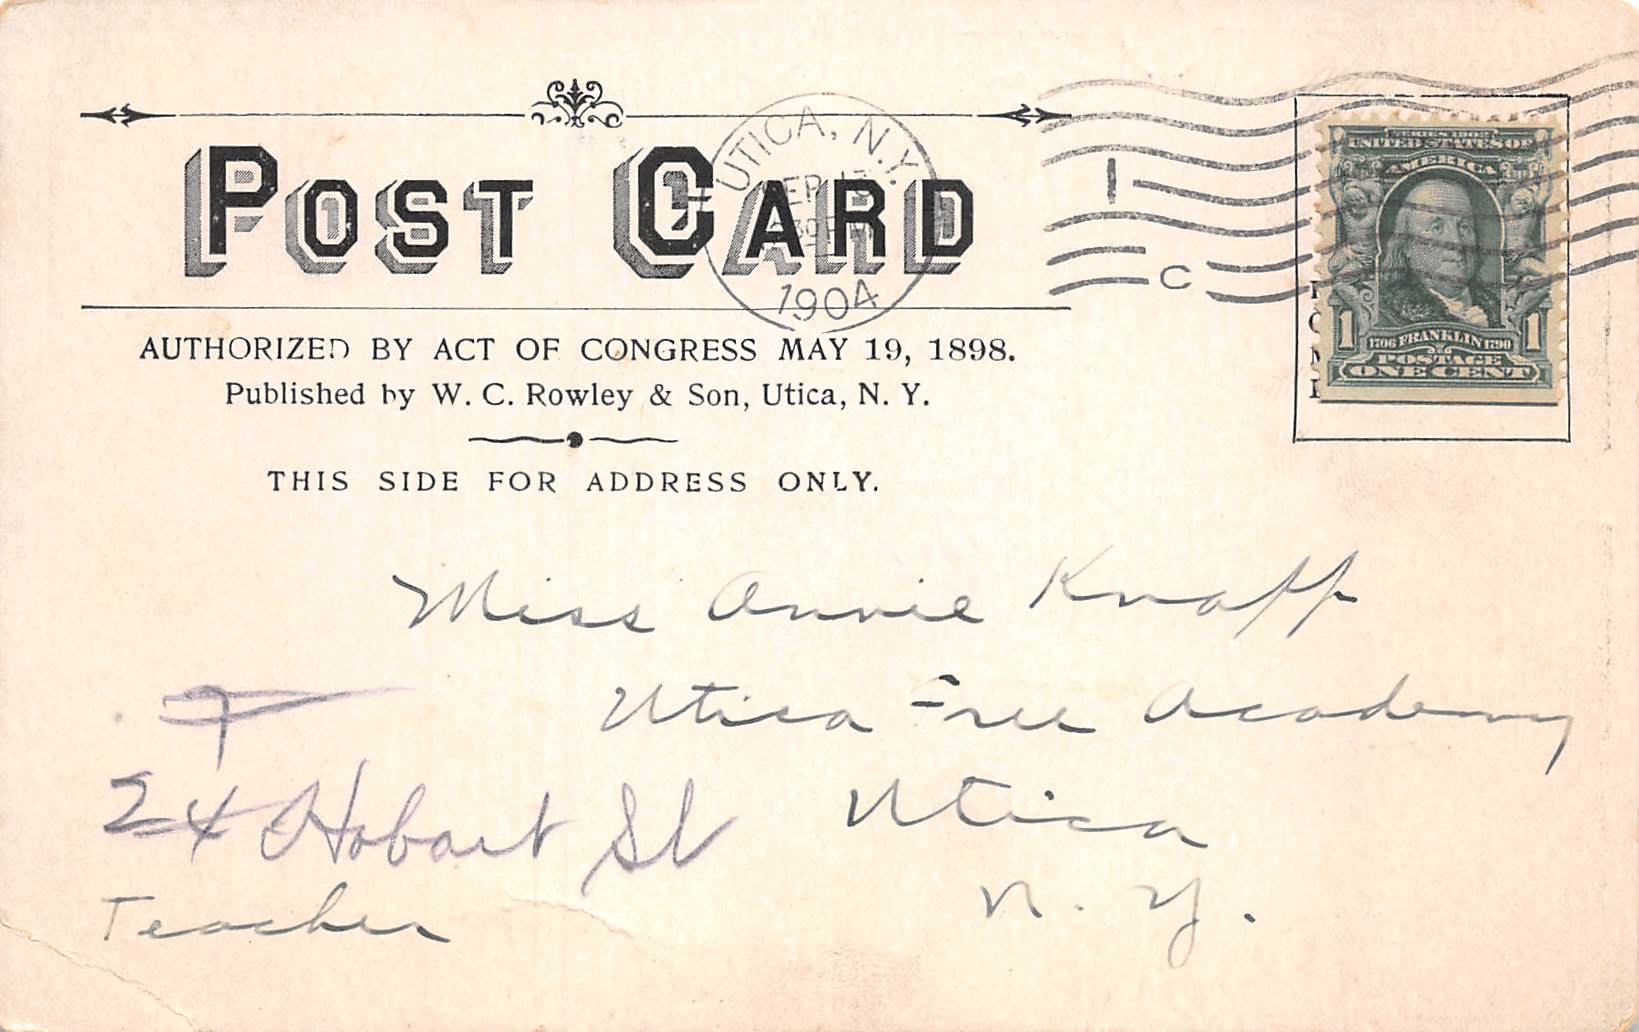 POST CARD
AUTHORIZED BY ACT OF CONGRESS MAY 19, 1898.
Published by W. C. Rowley & Son, Utica, N. Y.
THIS SIDE FOR ADDRESS ONLY.
UTICA, N.Y.
SEP 13
30 PM
1904
1
C
SERIES 1902
UNITED STATES OF
AMERICA
1 1
1706 FRANKLIN 1790
POSTAGE
ONE CENT
Miss Annie Knapp
Utica Free Academy
Utica
N. Y.
24 Hobart St
Teacher